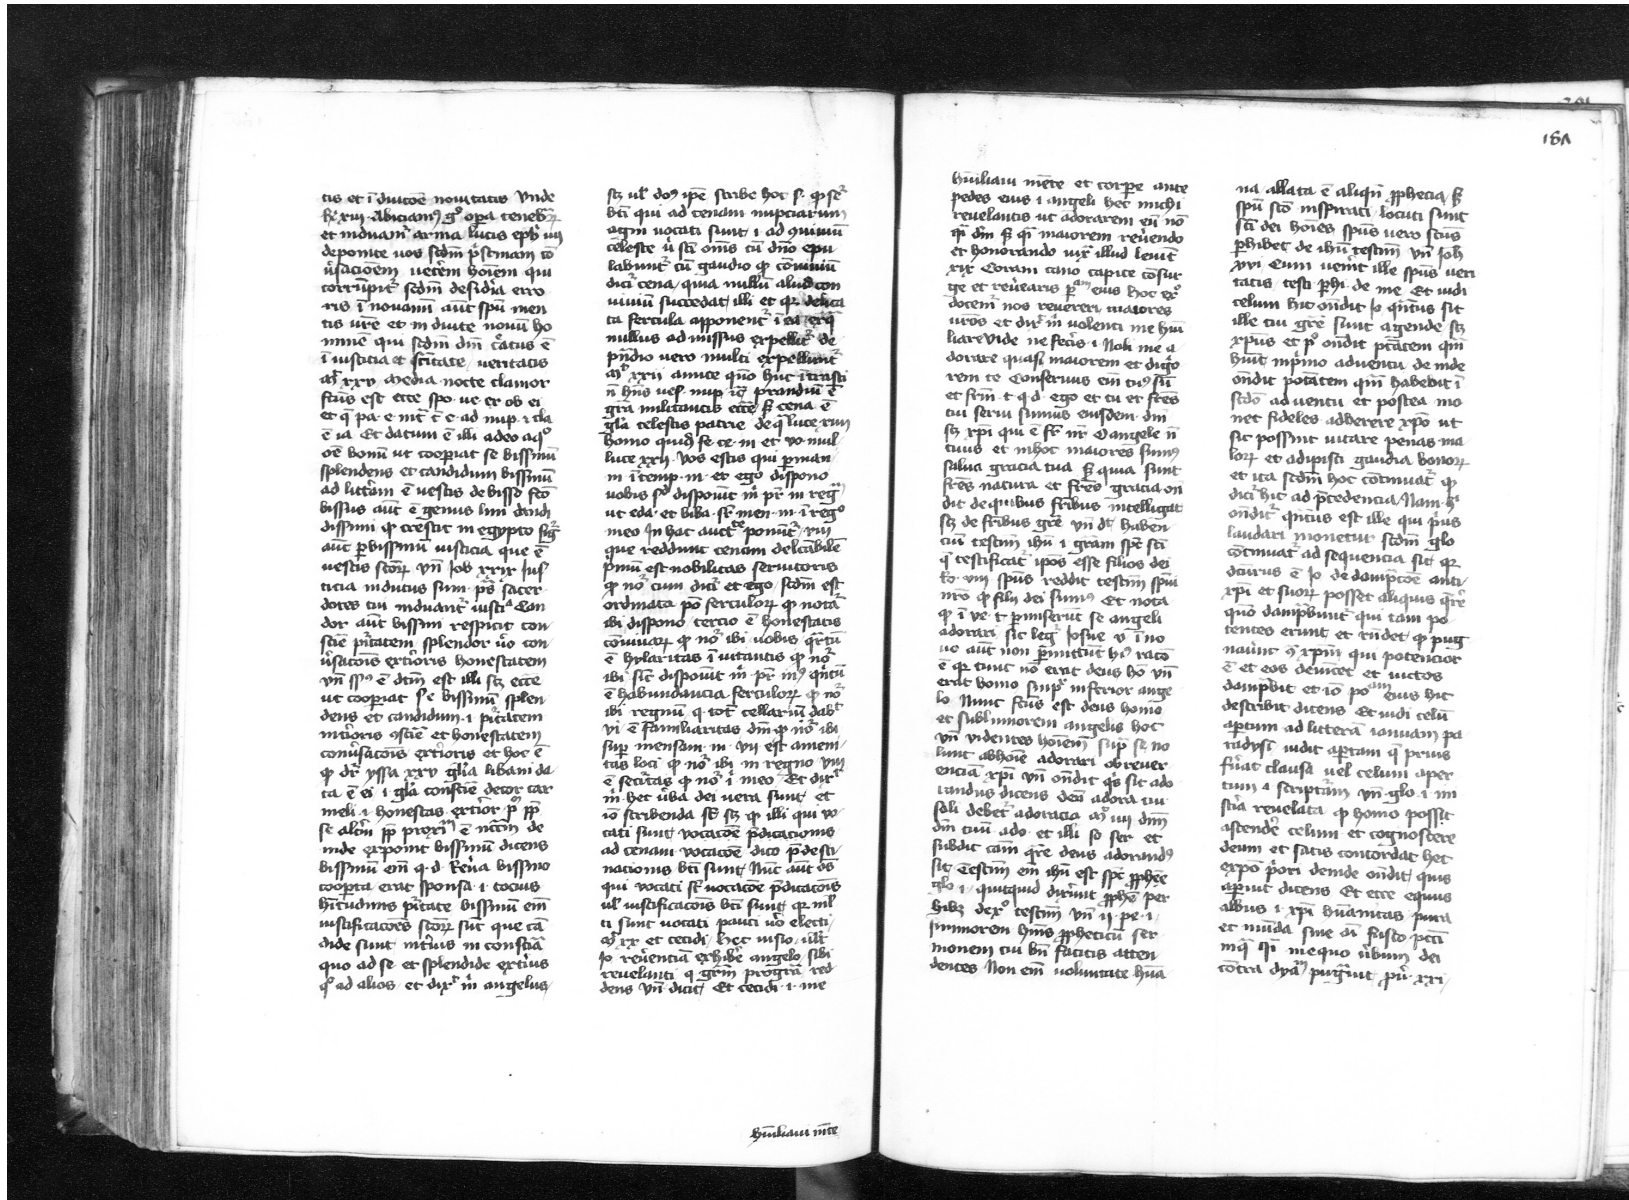 tis et ī diuicōe nouitatis Vnde
et induamꝰ arma lucis eph̄ iiij
deponite uos scdm̄ p̄stinam cō
ūsacionem veterem hoīem qui
corrūpitꝰ scdm̄ desid̓ia erro
ris ī nouamī aūt spū men
tis vr̄e et induite nouū ho
minē qui scdm̄ dm̄ c̓atus ē
ī iusticia et sc̄itate veritatis
media nocte clamor
fc̄us est ecce spo ve er ob ei
ē ia Et datum ē illi
bonū ut coop̄iat se bissinū
splendens et candidum bissinū
ad litt̓am ē vestis de bisso fc̄o
bissus aūt ē genus lini
dissimi qꝫ crescit in egypto
aūt p̄ bissinū iusticia que ē
vestis sc̄oꝝ vn̄ Job xxix Jus
ticia indutus sum p̄s sacer
dores tui induantꝰ iusti Can
dor aūt bissini respicit con
sciē p̄itatem splendor ūo con
ūsacōis exterioris honestatem
est illi scꝫ ecce
ut coop̄iat se bissinū splen
dens et candidum i p̄itatem
int̓ioris ɔsciē et honestatem
conūsacōis ext̓ioris et hoc ē
qꝫ dr̄ ysa xxv gl̄ia libani da
ta ē ei i gl̄a consciē decor car
meli i honestas ext̓ior
inde exponit bissinū dicens
bissinū em̄ q d Reūa bissino
coop̄ta erat sponsa i tocius
p̄itate bissinū em̄
iustificacōes sc̄oꝝ sūt que cā
dide sunt int̓ius in consciā
quo ad se et splendide ext̓ius
qo ad alios et dixꝰ m̄ angelus
scꝫ ul̄ ipe scribe hoc
bt̄i qui ad cenam nupciarum
agni vocati sunt i ad ɔuiuiū
celeste ū sc̄i om̄s cū dn̄o epu
labuntꝰ cū gaudio qꝫ cōuiuiū
dicꝰ cena quia nullū aliud con
uiuiū succedat illi et qꝛ delica
ta fercula apponentꝰ ī ea
nullus admissus expellitꝰ de
pn̄dio vero multi expelluntꝰ
xxij amice quō huc ītrasti
n̄ hn̄s ves nup prandiū ē
gr̄a militantis ecc̄e sꝫ cena ē
gl̄a celestis patrie de q luce xiiij
homo quidā fe ce m et vo mul
luce xxij vos estis qui p̄man
m ī temp m et ego dispono
vobis dispouit m̄ pr̄ m regnū
ut eda et biba sꝫ men m ī regno
meo In hac auctte ponūtꝰ viij
que reddunt cenam delc̄abilē
p̄mū est nobilitas seruitoris
qꝫ notꝰ cum dicꝰ et ego scdm̄ est
ordinata po ferculoꝝ qꝫ notaꝰ
ibi dispono tercio ē honestatis
cōuiuaꝝ qꝫ notꝰ ibi vobis qr̄tū
ē hylaritas ī uitantis qꝫ notꝰ
ibi sic̄ dispouit m̄ pr̄ mꝰ qn̄tū
ē habundancia ferculoꝝ qꝫ notꝰ
ibi regnum q tot̄ cellariū
vi ē familiaritas
supꝰ mensam m vij est ameni
tas loci qꝫ notꝰ ibi in regno viij
ē securitas qꝫ notꝰ ī meo Et dixꝰ
m̄ hec ūba dei vera sunt et
io scribenda scꝫ qꝫ illi qui vo
cati sunt vocacōe p̄dicacionis
ad cenam vocacōe dico p̄desti
nacionis bt̄i sunt Nūc aūt oēs
qui vocati sꝫ vocacōe p̄dicacōis
ul̄ iustificacōis bt̄i sunt qꝛ ml̄
ti sunt vocati pauci ūo electi
xx et cecidi hec uisio
io reūenciā exhib̓e angelo sibi
revelanti
dens vn̄ dicit Et cecidi i me
hūiliaui mēte
181
hūiliaui mēte et corpe ante
pedes eius i angeli hec michi
revelantis ut adorarem eū nō
qꝫ dm̄ sꝫ qꝫ maiorem reūendo
et honorando iuxꝰ illud leuit
xix Coram cano capite cōsur
ge et reūearis eius hoc
docemꝰ nos revereri maiores
uros et dixꝰ m̄ volenti me hūi
liare Vide ne fec̓is i Noli me a
dorare quasi maiorem et dig̓o
rem te Conseruus em̄ tuꝰ sū
et frm̄ t q d ego et tu et fr̄es
tui serui sumus eiusdem dm̄
scꝫ xp̄i qui ē fr̄ nr̄ O angele n̄
tuus et in hoc maiores sumꝰ
salua gracia tua sꝫ quia sunt
fr̄es natura et fr̄es gracia on̄
dit de quibus fr̄ibus intelligat
scꝫ de fr̄ibus gr̄e vn̄ dt̄ haben
ciū testm̄ ihū i gram̄ spc̄ sc̄i
q testificatꝰ ipos esse filios dei
ro viij spūs reddit testm̄ spui
nro qꝫ filij dei sumꝰ Et nota
qꝫ ī ve t p̄miserūt se angeli
adorari sic legꝰ Josue v ī no
uo aūt non p̄mittunt hꝰ racō
ē qꝛ tunc nō erat deus hō vn̄
erat homo simpꝰ inferior ange
lo Nunc fc̄us est deus homo
et sublimiorem angelis hoc
vn̄ videntes hoīem supꝰ se no
lunt ab hoīe adorari ob reuer
enciā xp̄i vn̄ on̄dit qs sit ado
randus dicens deū adora tu
soli debetꝰ adoracia iiij dnm̄
dm̄ tuū ado et illi so ser et
subdit cām qr̄e deus adorandꝰ
sit Testm̄ em̄ ihū est spc̄ ꝓphecie
glo i quitquid dixerūt ꝓphe per
hibꝫ de testm̄ vn̄ ij pe i
firmiorem hm̄s ꝓpheticū ser
monem cui bn̄ facitis atten
dentes Non em̄ voluntate hūa
na allata ē aliqn̄ ꝓphecia sꝫ
spū sc̄o inspirati locuti sunt
sc̄i dei hoīes spūs vero sc̄us
p̄hibet de ihū testm̄ vn̄ Joh
xvi Cum ven̓it ille spūs veri
tatis testi p̄hi de me Et uidi
celum hic on̄dit io qn̄tus sit
ille cui gr̄e sunt agende scꝫ
xp̄us et p̄ on̄dit ptātem qm̄
habuit in p̄mo adventu deinde
on̄dit potātem qm̄ habebit ī
sc̄do adventu et postea mo
net fideles adherere xp̄o ut
sic possint vitare penas ma
loꝝ et adipisci gaudia bonoꝝ
et ita scdm̄ hoc cōtinuatꝰ qꝫ
dicꝰ hic ad p̄cedencia Nam
on̄ditꝰ qn̄tus est ille qui p̄us
laudari monetur scdm̄ glo
cōtinuatꝰ ad sequencia sic qꝛ
dc̄urus ē io de dampn̄acōe anti
xp̄i et suoꝝ posset aliquis
quō dampn̄bunt qui tam po
tentes erunt et rn̄det qꝫ pug
nabit ɔ xp̄m qui potencior
ē et eos deuincet et uictos
damp̄bit et iō eius hic
describit dicens Et uidi celū
ap̄tum ad litteram ianuam pa
radysi uidit ap̄tam q prius
fūat clausa vel celum aper
tum i scripturam vn̄ glo i mi
stīa revelata qꝫ homo possit
ascendere celum et cognoscere
deum et satis concordat hec
expō p̄ori deinde on̄dit quis
ap̄iuit dicens Et ecce equus
albus i xp̄i hūanitas pura
et mūda sine oī fusto pct̄i
in q qsi in equo ūbum dei
cōtra dya pug̓auit